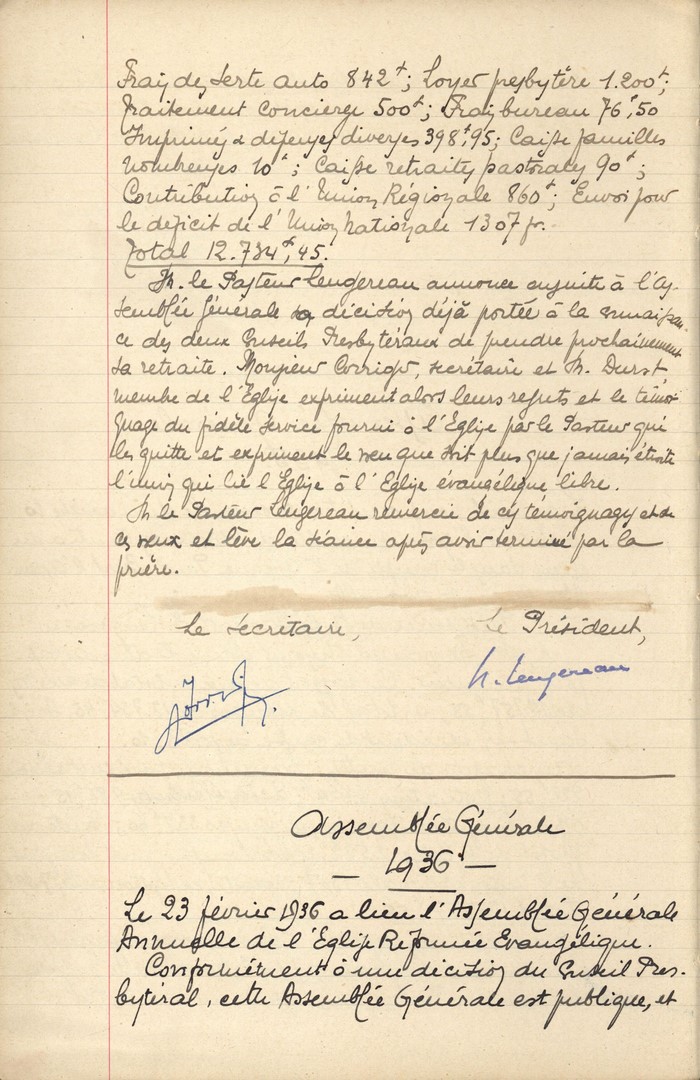 Frais de desserte auto 842 f; Loyer presbytère 1.200 f;
Traitement concierge 500 f; Frais bureau 76 f,50
Imprimés & dépenses diverses 398 f,95; Caisse familles
nombreuses 10 f; Caisse retraites pastorales 90 f;
Contribution à l'Union Régionale 860 f; Envoi pour
le déficit de l'Union Nationale 1307 fr.
Total 12.734 f,45.
M. le Pasteur Lengereau annonce ensuite à l'As-
semblée Générale sa décision déjà portée à la connaissan-
ce des deux Conseils Presbytéraux de prendre prochainement
sa retraite. Monsieur secrétaire et M. Durst,
membre de l'Église expriment alors leurs regrets et le témoi-
gnage du fidèle service fourni à l'Église par le Pasteur qui
les quitte et expriment le vœu que soit plus que jamais étroite
l'union qui lie l'Eglise à l'Eglise évangélique libre.
M le Pasteur Lengereau remercie de ces témoignages et de
ces vœux et lève la séance après avoir terminé par la
prière.
Le Secrétaire,
Le Président,
H. Lengereau
Assemblée Générale
— 1936 —
Le 23 février 1936 a lieu l'Assemblée Générale
Annuelle de l'Église Réformée Evangélique.
Conformément à une décision du Conseil Pres-
bytéral, cette Assemblée Générale est publique, et